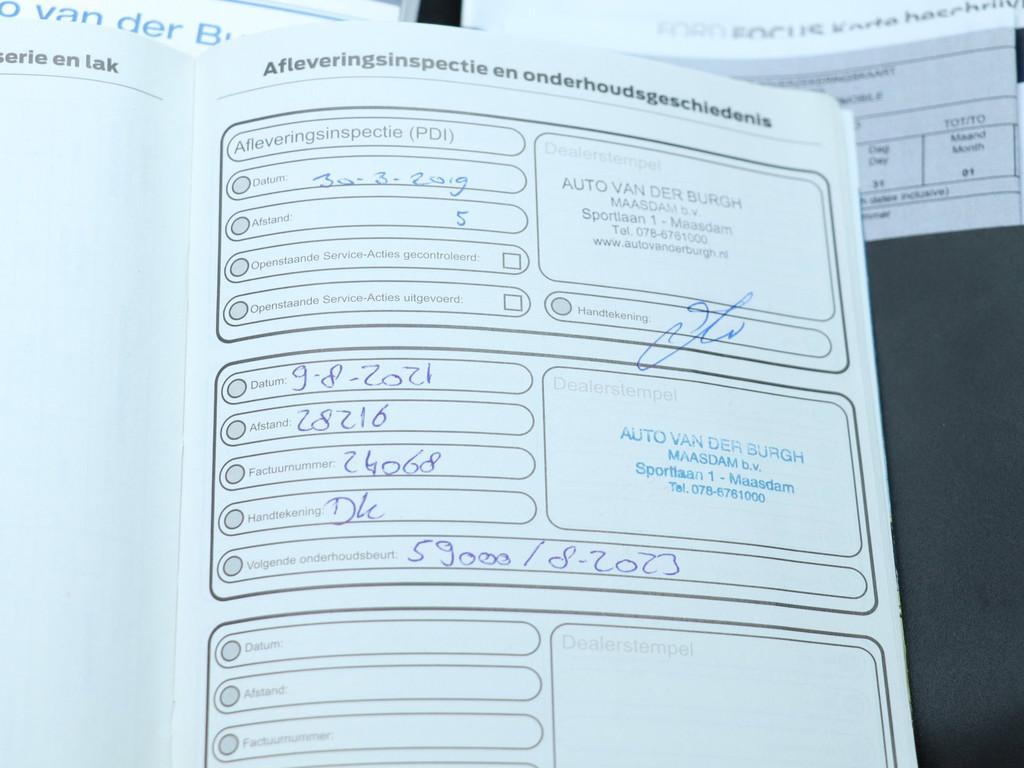 o van der Bu
FORD FOCUS Korte beschrijvi
MOBILE
TOT/TO
Dag
Day
Maand
Month
31
01
serie en lak
Afleveringsinspectie en onderhoudsgeschiedenis
Afleveringsinspectie (PDI)
Datum: 30-3-2019
Afstand: 5
Openstaande Service-Acties gecontroleerd:
Openstaande Service-Acties uitgevoerd:
Dealerstempel
AUTO VAN DER BURGH
MAASDAM b.v.
Sportlaan 1 - Maasdam
Tel. 078-6761000
www.autovanderburgh.nl
Handtekening:
Datum: 9-8-2021
Afstand: 28216
Factuurnummer: 24068
Handtekening: Dk
Volgende onderhoudsbeurt: 59000 / 8-2023
Dealerstempel
AUTO VAN DER BURGH
MAASDAM b.v.
Sportlaan 1 - Maasdam
Tel. 078-6761000
Datum:
Afstand:
Factuurnummer:
Dealerstempel